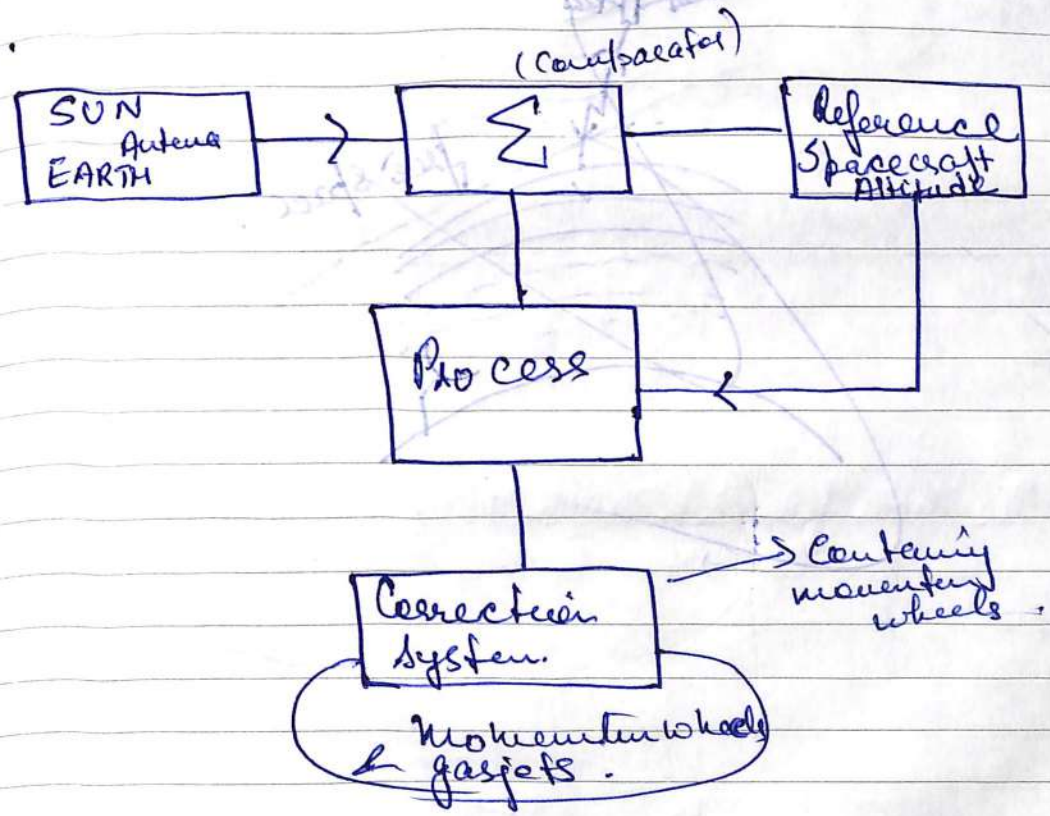 (Comparator)
SUN
Antena
EARTH
Σ
Reference
Spacecraft
Altitude
Process
Correction
system.
Containing
momentum
wheels.
Momentum wheels
& gasjets.